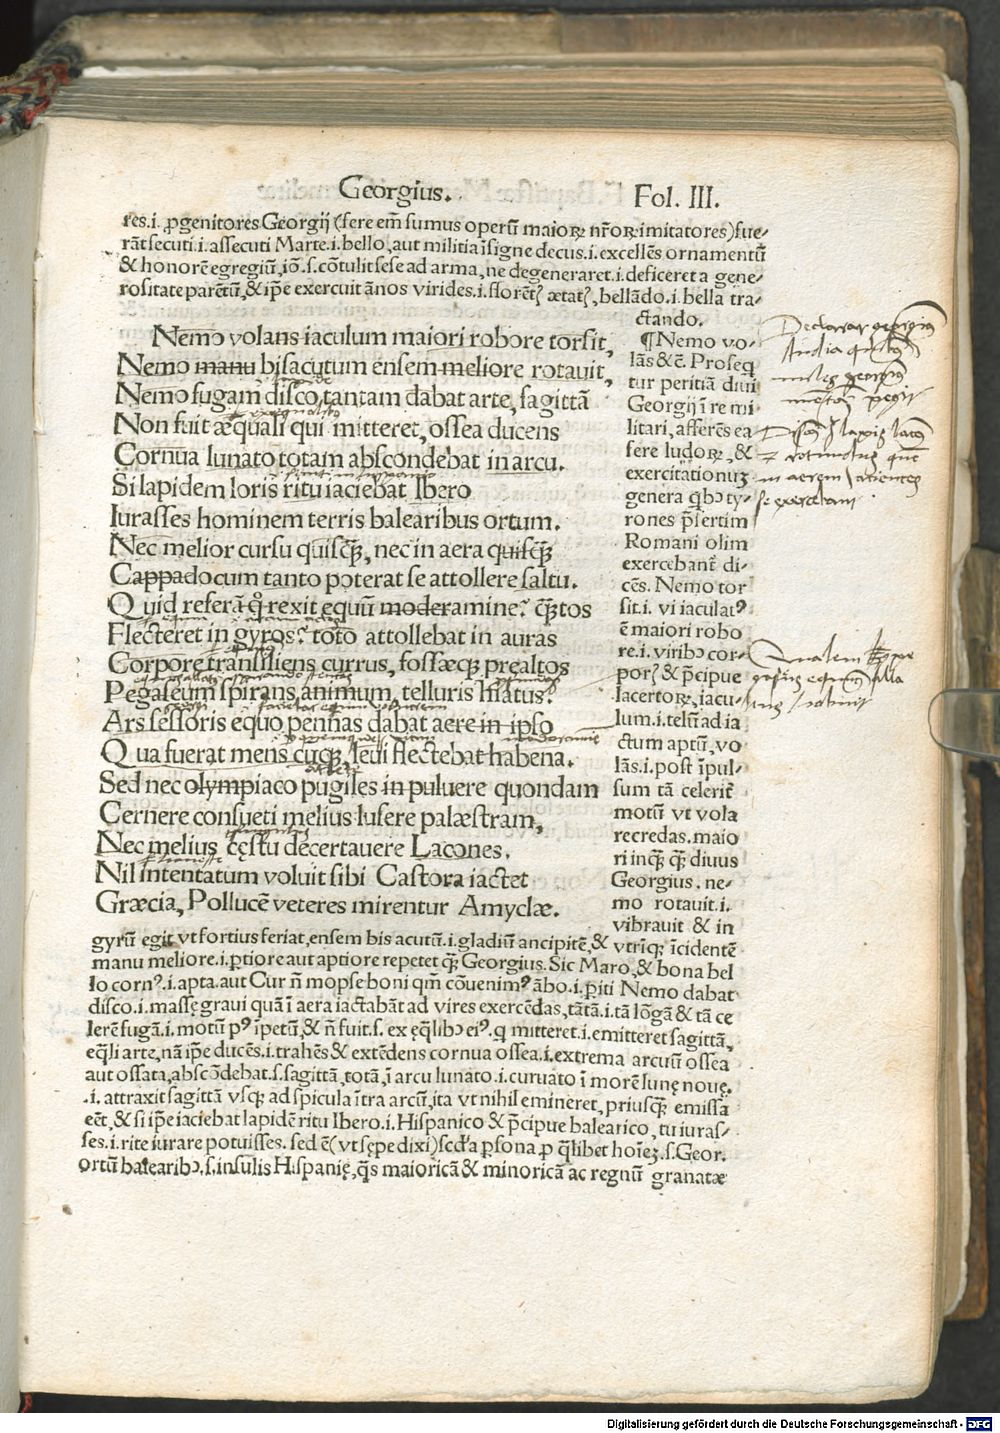 Georgius. Fol. III.
res.i. ꝓgenitores Georgij (fere em̃ sumus operũ maioꝝ nr̃oꝝ imitatores) fue⸗
rãt secuti.i. assecuti Marte.i. bello, aut militia ĩsigne decus.i. excellẽs ornamentũ
& honorẽ egregiũ, iõ.s. cõtulit sese ad arma, ne degeneraret.i. deficeret a gene⸗
rositate parẽtũ, & ip̃e exercuit ãnos virides.i. florẽtꝭ ætatꝭ, bellãdo.i. bella tra⸗
ctando.
Nemo volans iaculum maiori robore torsit,
Nemo manu bisacutum ensem meliore rotauit,
Nemo fugam disco tantam dabat arte, sagittã
Non fuit æquali qui mitteret, ossea ducens
Cornua lunato totam abscondebat in arcu.
Si lapidem loris ritu iaciebat Ibero
Iurasses hominem terris balearibus ortum.
Nec melior cursu quisq̃, nec in aera quisq̃
Cappadocum tanto poterat se attollere saltu.
Quid referã q̃ rexit equũ moderamine? q̃ tos
Flecteret in gyros? toto attollebat in auras
Corpore transiliens currus, fossæq; prealtos
Pegaseum spirans animum, telluris hiatus?
Ars sessoris equo pennas dabat aere in ipso
Qua fuerat mens cuiq;, leui flectebat habena.
Sed nec olympiaco pugiles in puluere quondam
Cernere consueti melius lusere palæstram,
Nec melius cęstu decertauere Lacones.
Nil intentatum voluit sibi Castora iactet
Græcia, Pollucẽ veteres mirentur Amyclæ.
¶Nemo vo⸗
lãs &c̃. Proseq
tur peritiã diui
Georgij ĩ re mi
litari, afferẽs ea
fere ludoꝝ, &
exercitationũ
genera q̃bꝰ ty⸗
rones p̃sertim
Romani olim
exercebant̃ di⸗
cẽs. Nemo tor
sit.i. vi iaculatꝰ
ẽ maiori robo
re.i. viribꝰ cor⸗
porꝭ & p̃cipue
lacertoꝝ, iacu⸗
lum.i. telũ ad ia
ctum aptũ, vo
lãs.i. post ĩpul⸗
sum tã celerit̃
motũ vt vola
re credas. maio
ri inq̃ q̃ diuus
Georgius. ne⸗
mo rotauit.i.
vibrauit & in
gyrũ egit vt fortius feriat, ensem bis acutũ.i. gladiũ ancipitẽ, & vtriq; ĩcidentẽ
manu meliore.i. ꝑtiore aut aptiore repetet q̃ Georgius. Sic Maro, & bona bel
lo cornꝰ.i. apta. aut Cur ñ mopse boni qm̃ cõuenimꝰ ãbo.i. ꝑiti Nemo dabat
disco.i. massę graui quã ĩ aera iactabãt ad vires exercẽdas, tãtã.i. tã lõgã & tã ce
lerẽ fugã.i. motũ pꝰ ĩpetũ, & ñ fuit.s. ex ęq̃libꝰ eiꝰ. q̃ mitteret.i. emitteret sagittã,
eq̃li arte, nã ip̃e ducẽs.i. trahẽs & extẽdens cornua ossea.i. extrema arcuũ ossea
aut ossata, abscõdebat.s. sagittã, totã, ĩ arcu lunato.i. curuato ĩ morẽ lunę nouę.
.i. attraxit sagittã vsq; ad spicula ĩtra arcũ, ita vt nihil emineret, priusq̃ emissa
eẽt, & si ip̃e iaciebat lapidẽ ritu Ibero.i. Hispanico & p̃cipue balearico, tu iuras⸗
ses.i. rite iurare potuisses. sed ẽ (vt sępe dixi) scd̃a ꝑsona ꝓ q̃libet hoĩe.s. Geor.
ortũ balearibꝰ.s. insulis Hispanię, q̃s maioricã & minoricã ac regnũ granatæ
Digitalisierung gefördert durch die Deutsche Forschungsgemeinschaft - DFG